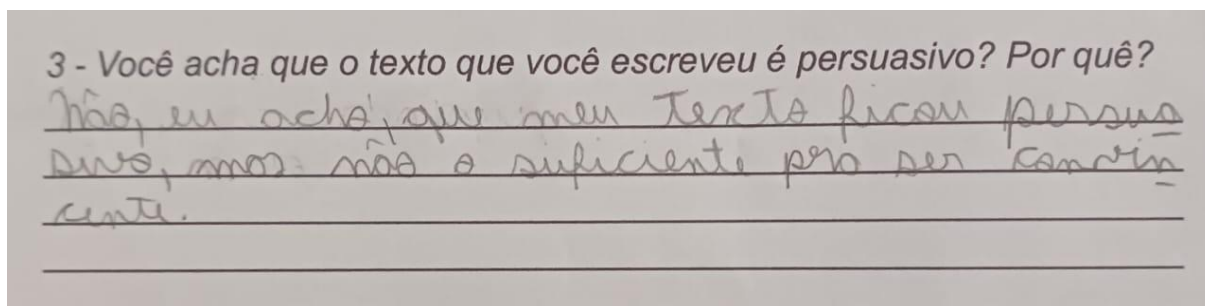 3 - Você acha que o texto que você escreveu é persuasivo? Por quê?
Não, eu acho, que meu texto ficou persua
sivo, mas não o suficiente pra ser convin
cente.